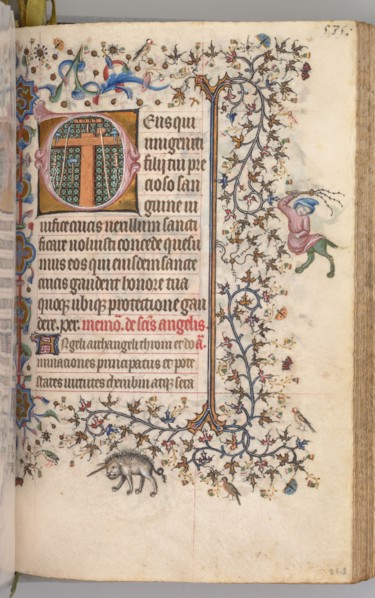 575.
Eus qui
unigeniti
filii tui pre
cioso san
guine ui
uifice crucis uexillum sancti
ficare uoluisti concede quesu
mus eos qui eiusdem sancte
crucis gaudent honore tua
quoqꝫ ubiqꝫ protectione gau
dere. per. memo. de scis angelis.
Angeli archangeli throni et do a.
minaciones principatus et pote
states uirtutes cherubin atqꝫ sera